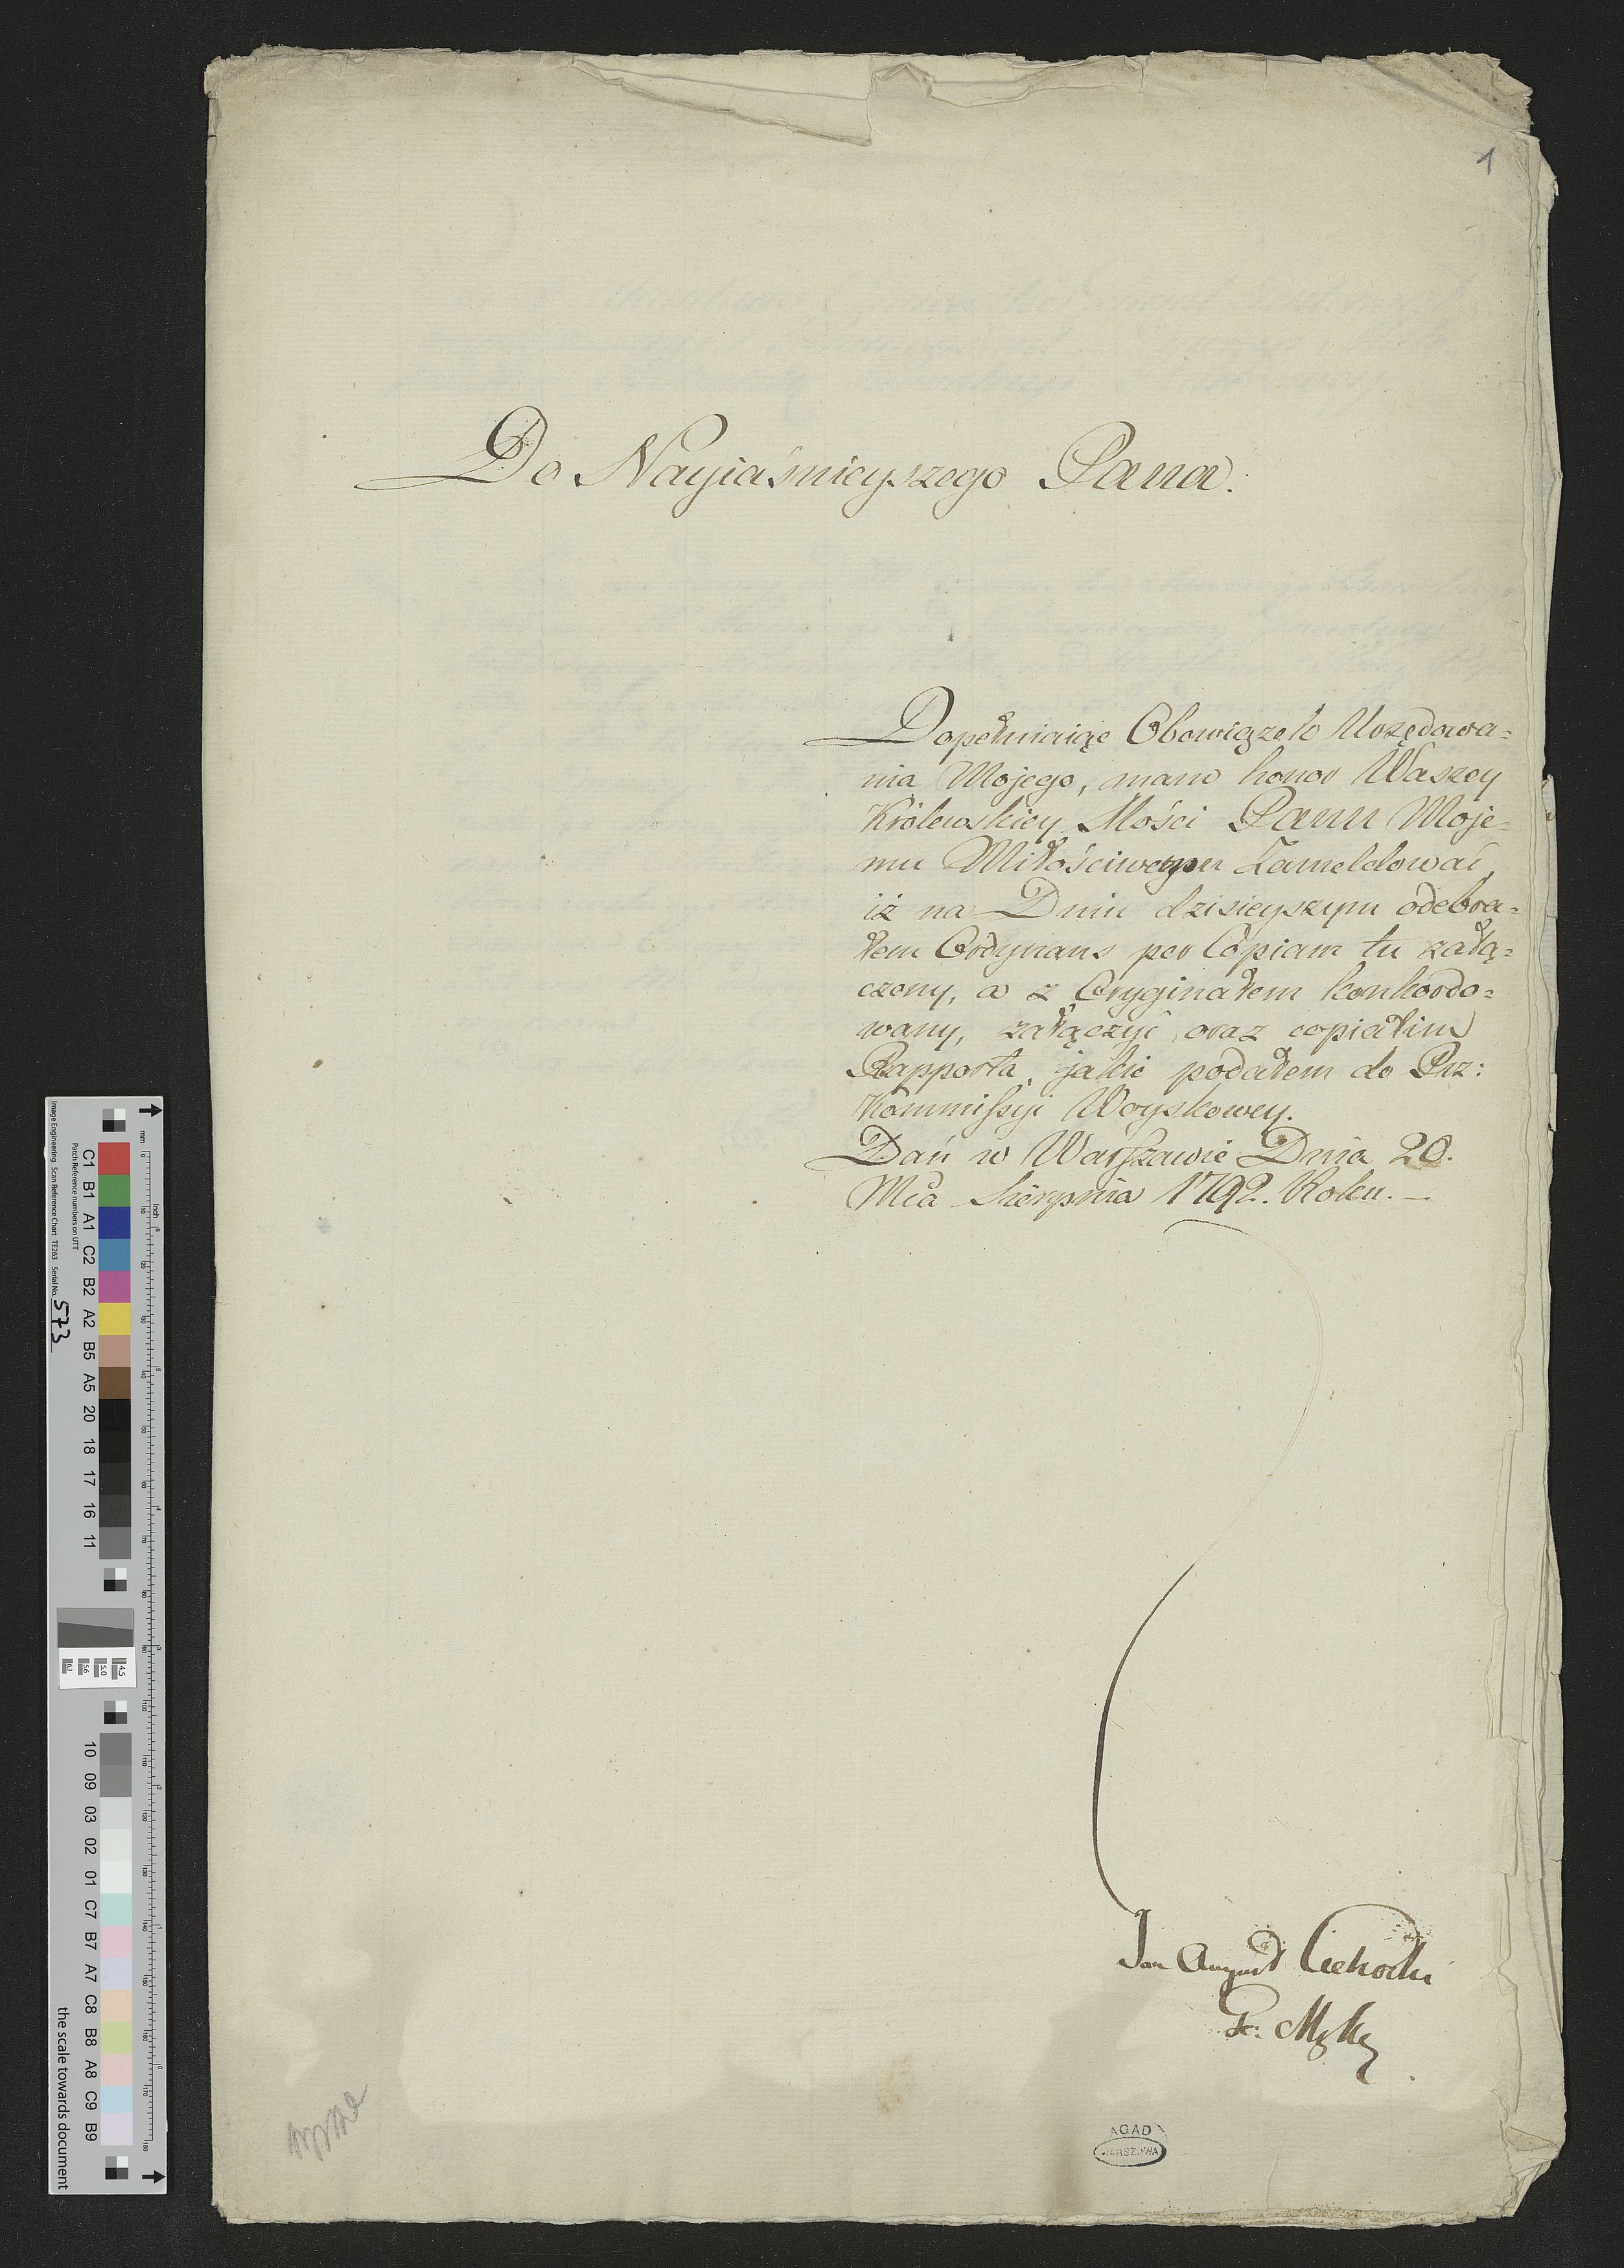 1
Do Nayiaśnieyszego Pana.
Dopełniaiąc Obowiązek Urzędowa=
nia Mojego, mam honor Waszey
Królewskiey Mości Panu Moje=
mu Miłościwemu Zameldować,
iż na Dniu dzisieyszym odebra=
łem Ordynans per Copiam tu załą=
czony, a z Oryginałem konkordo=
wany, załączyć oraz copiatim
Rapporta, jakie podałem do Prz:
Kommissyi Woyskowey.
Dań w Warszawie Dnia 20.
Mca Sierpnia 1792. Roku. —
Jan August Cichocki
AGAD
WARSZAWA
Image Engineering Scan Reference Chart TE263 Serial No. 573
Patch Reference numbers on UTT
C1 B1 A1 C2 B2 A2 B5 A5 20 18 17 16 11
10 09 03 02 01 C7 B7 A7 C8 B8 A8 C9 B9
the scale towards document
mm
inch